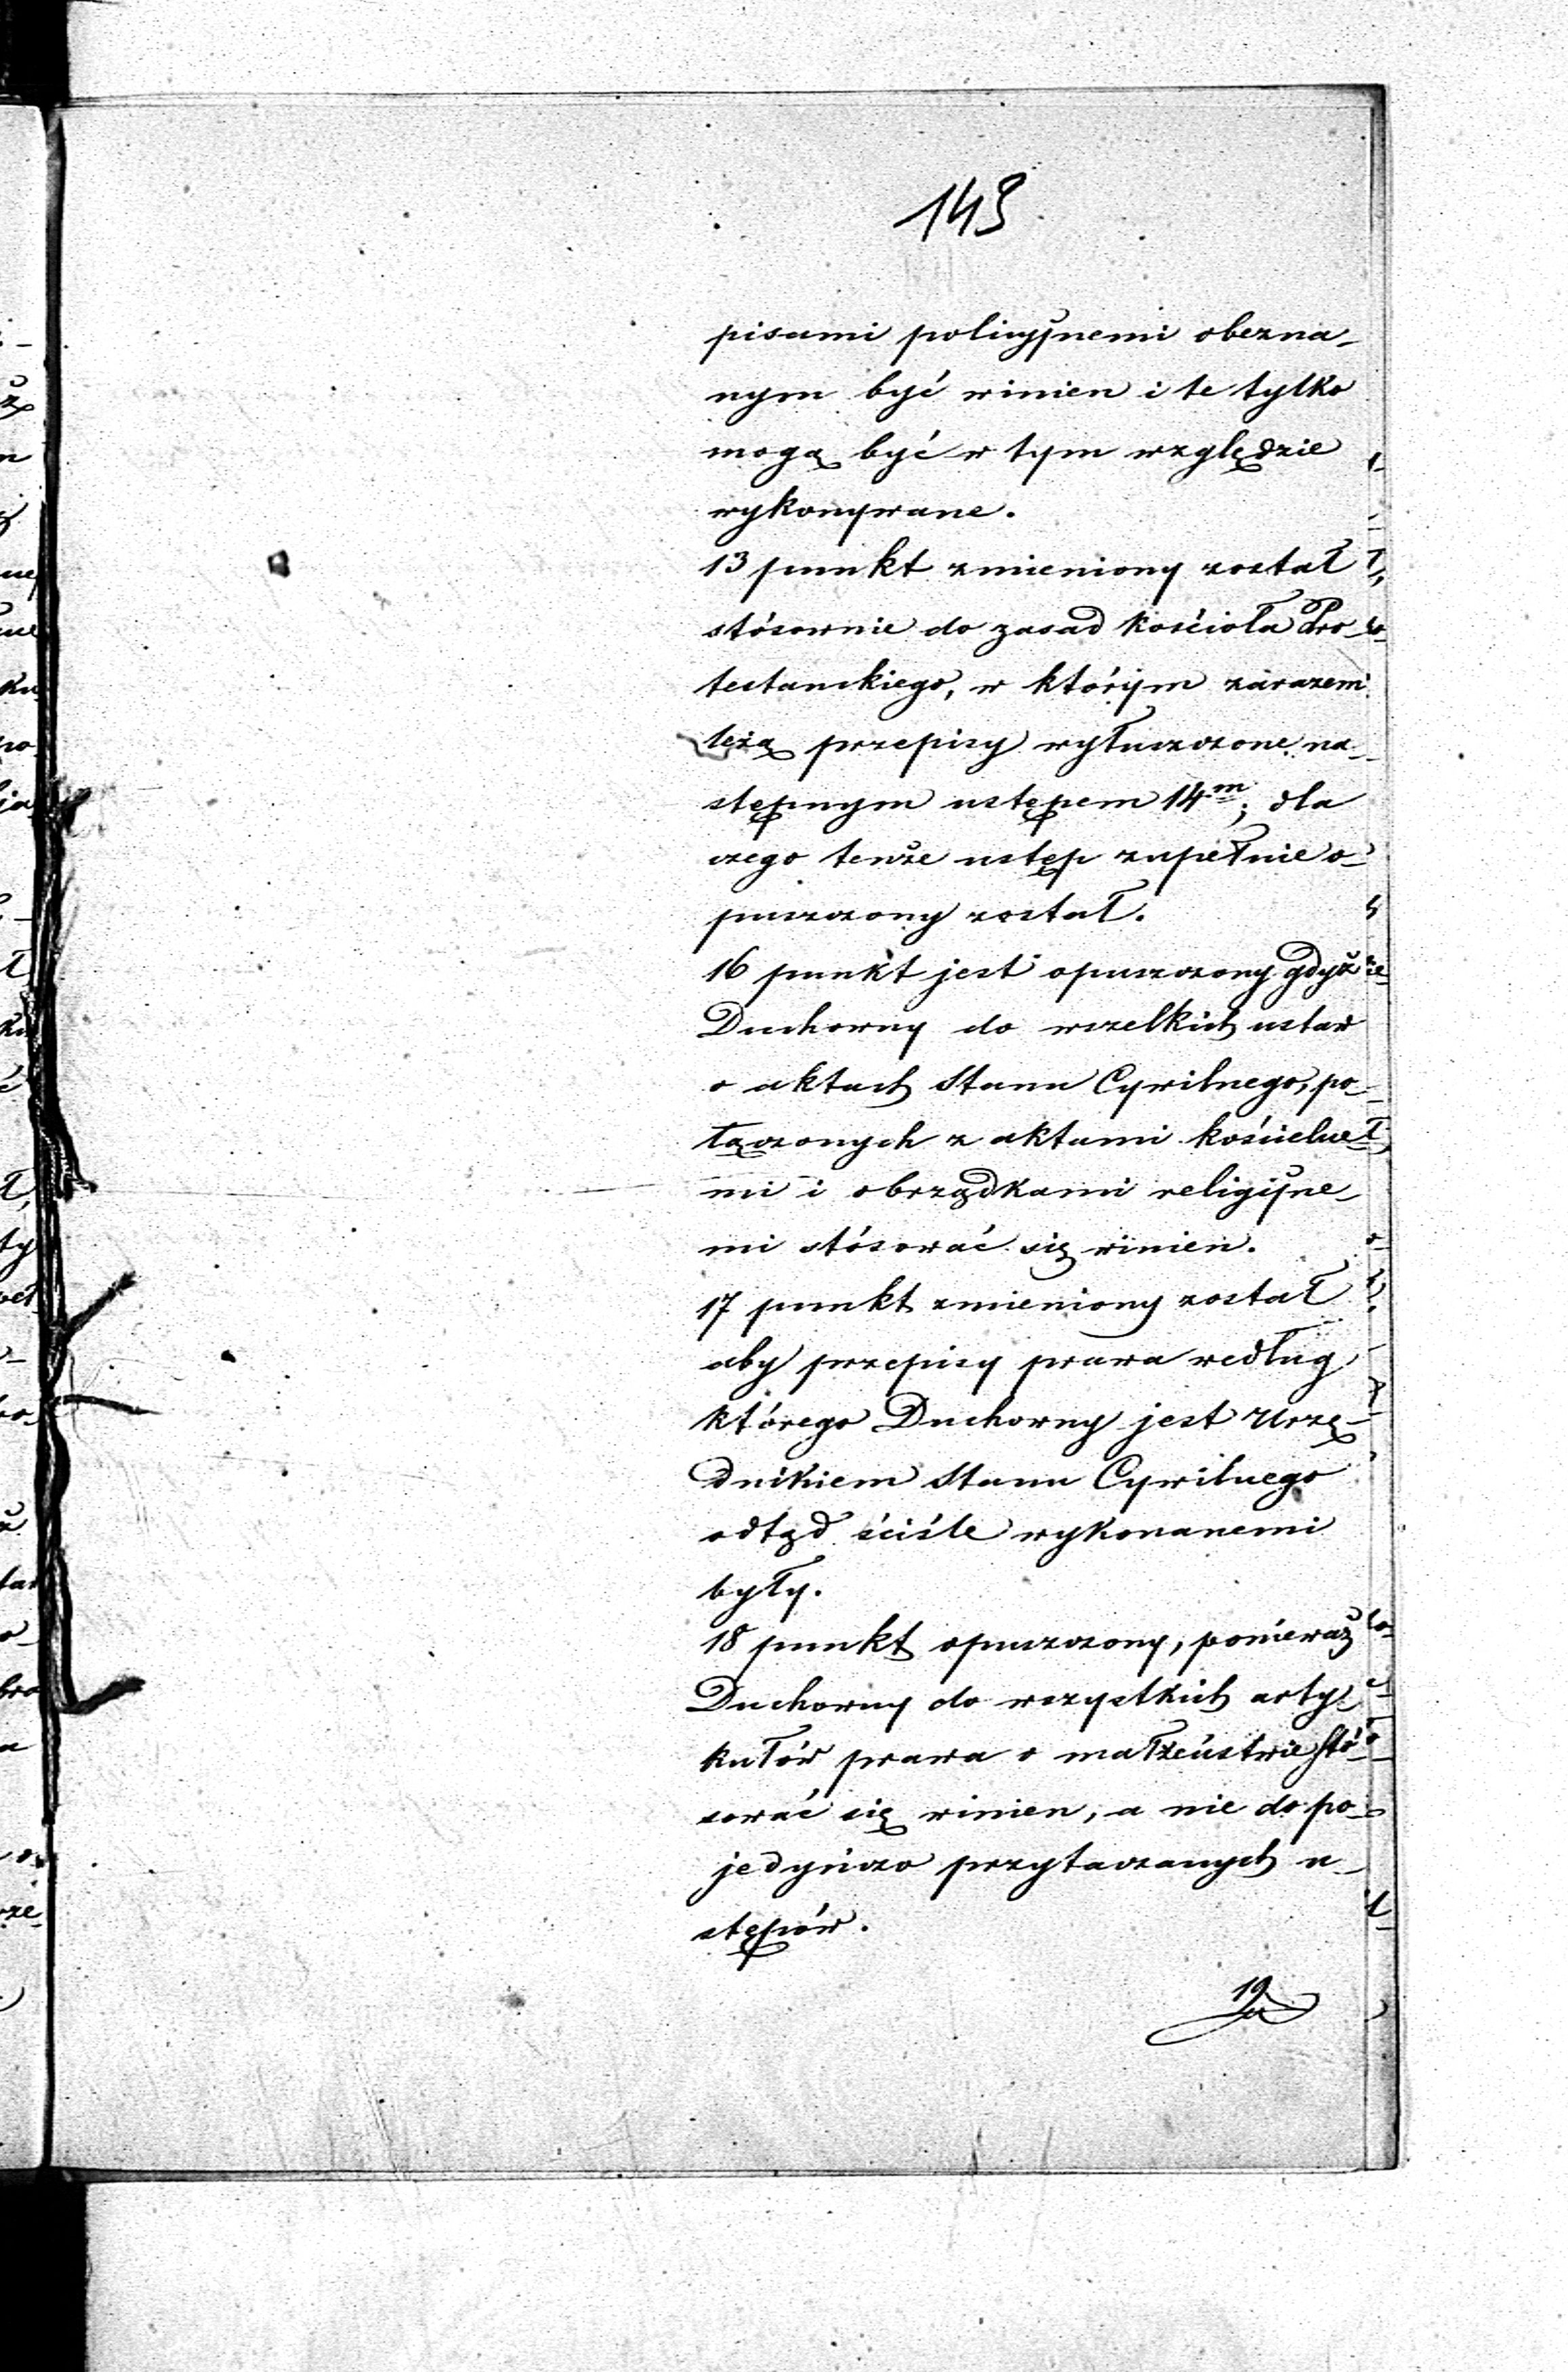 143
pisami policyjnemi obezna_
nym być winien i te tylko
mogą być w tym względzie
wykonywane.
13 punkt zmieniony został
stósownie do zasad kościoła Pro_
testanckiego, w którym zárazem
leżą przepisy wyłuszczone na_
stępnym ustępem 14m; dla
czego tenże ustęp zupełnie o_
puszczony został.
16 punkt jest opuszczony gdyż
Duchowny do wszelkich ustaw
o aktach Stanu Cywilnego, po_
łączonych z aktami kościelne_
mi i obrządkami religijne_
mi stósować się winien.
17 punkt zmieniony został
aby przepisy prawa według
którego Duchowny jest Urzę_
dnikiem Stanu Cywilnego
odtąd ściśle wykonanemi
były.
18 punkt opuszczony, ponieważ
Duchowny do wszystkich arty_
kułów prawa o małżeństwie stó_
sować się winien, a nie do po_
jedyńczo przytaczanych u_
stępów.
19